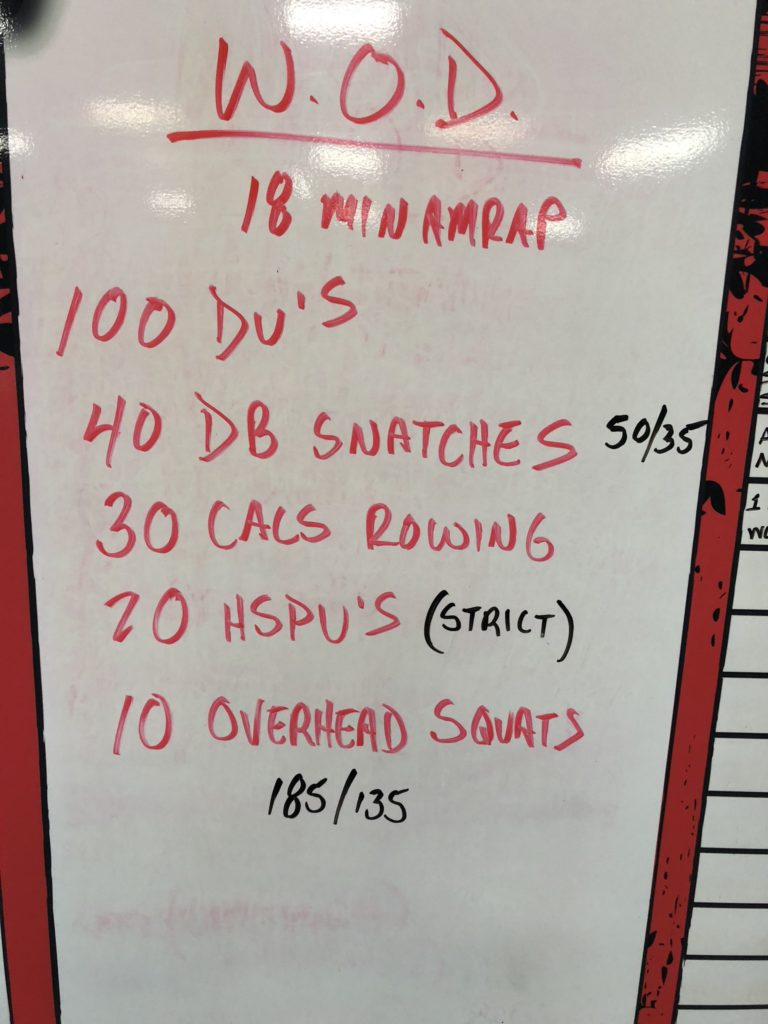 W.O.D.
18 MIN AMRAP
100 DU'S
40 DB SNATCHES 50/35
30 CALS ROWING
20 HSPU'S (STRICT)
10 OVERHEAD SQUATS
185/135